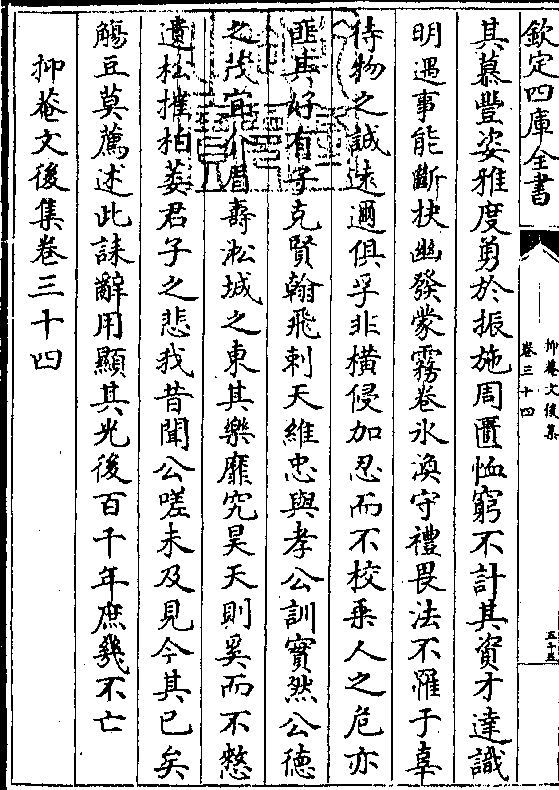 欽定四庫全書
抑菴文後集
卷三十四
其慕豐姿雅度勇於振施周匱恤窮不計其資才達識
明遇事能斷抉幽發蒙霧卷氷渙守禮畏法不罹于辜
待物之誠逺邇俱孚非橫侵加忍而不校乗人之危亦
匪其好有子克賢翰飛刺天維忠與孝公訓實然公德
之茂宜介眉壽淞城之東其樂靡究昊天則奚而不憗
遺松摧柏萎君子之悲我昔聞公嗟未及見今其已矣
觴豆莫薦述此誄辭用顯其光後百千年庶幾不亡
抑菴文後集卷三十四